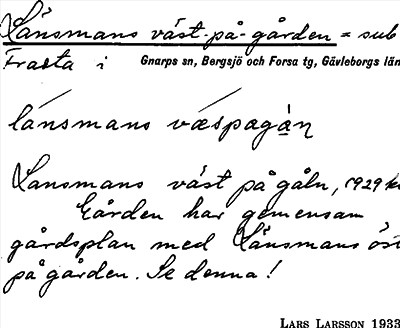 Länsmans väst-på-gården = sub
Fraeta i Gnarps sn, Bergsjö och Forsa tg, Gävleborgs län
länsmans væspagạ̊ṇ
Länsmans väst på gåln, 1929
Gården har gemensam
gårdsplan med Länsmans öst
på gården. Se denna!
LARS LARSSON 1933